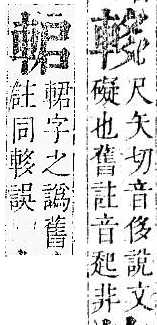 尺矢切音侈說文
礙也舊註音起非
字之譌舊
註同誤